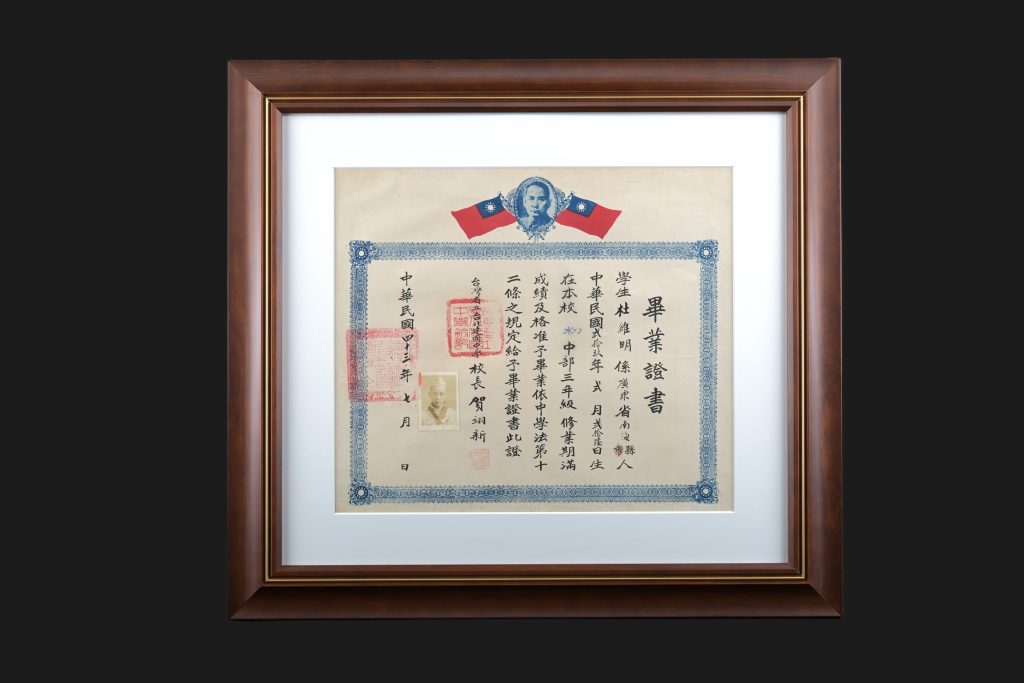 畢業證書
學生杜維明係廣東省南海縣人
中華民國貳拾玖年弍月貳拾陸日生
在本校初中部三年級修業期滿
成績及格准予畢業依中學法第十
二條之規定給予畢業證書此證
台灣省立台北建國中學校長賀翊新
中華民國四十三年七月 日